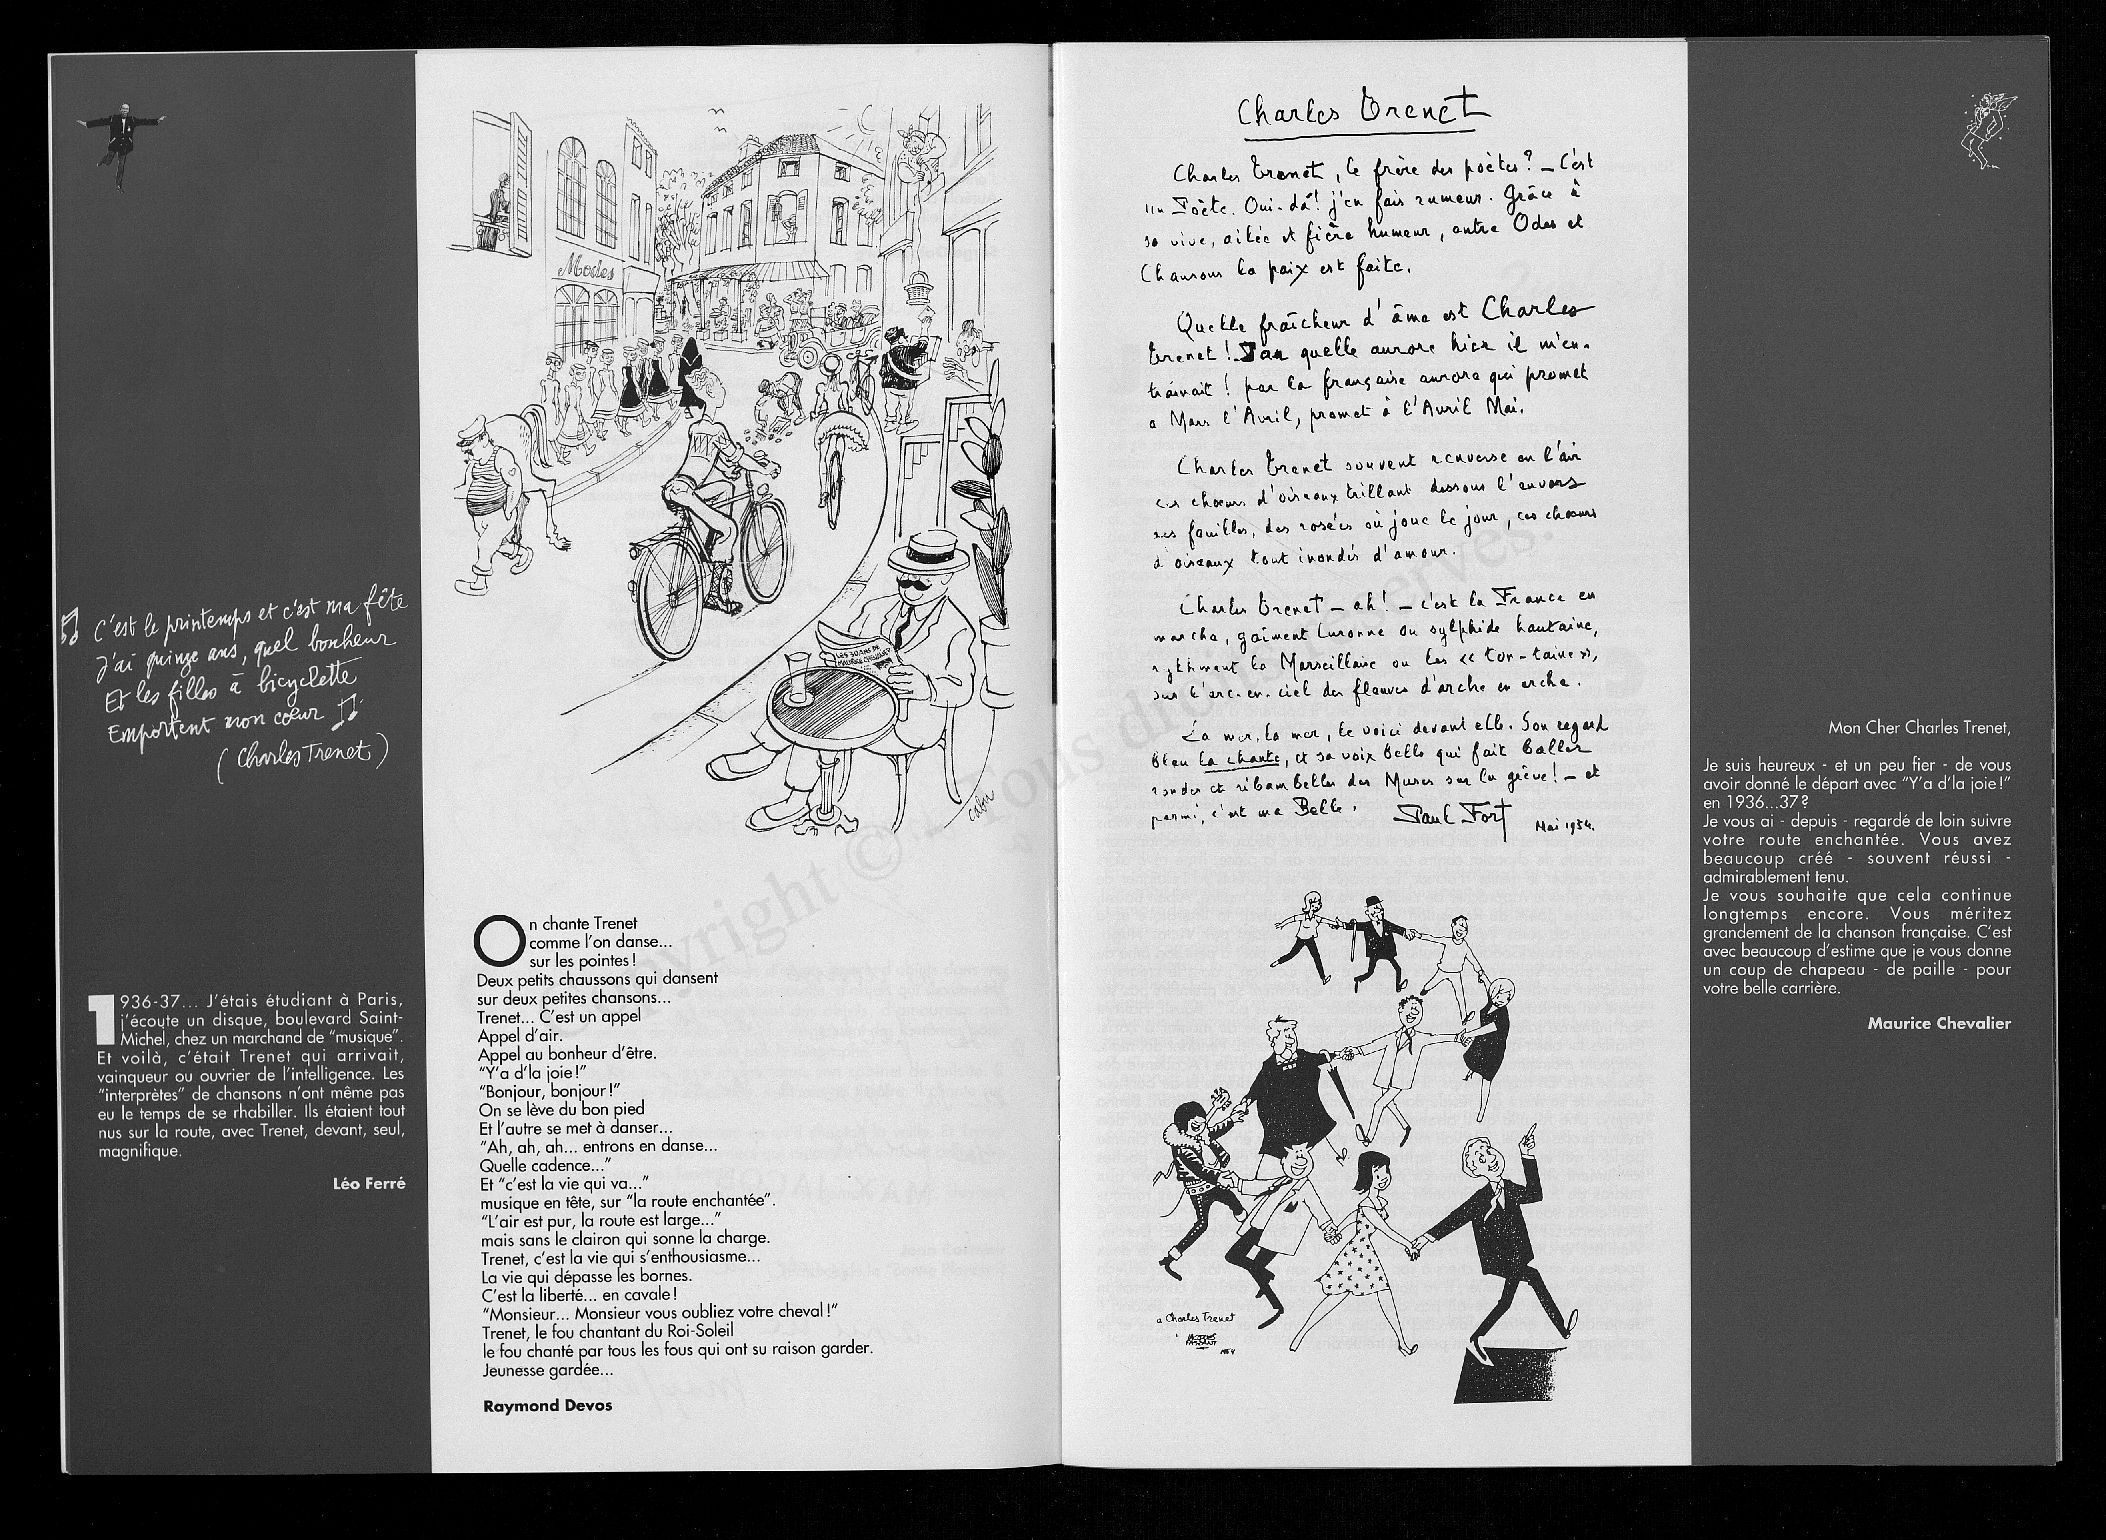 C'est le printemps et c'est ma fête
J'ai quinze ans, quel bonheur
Et les filles à bicyclette
Emportent mon cœur
(Charles Trenet)
1936-37... J'étais étudiant à Paris,
j'écoute un disque, boulevard Saint-
Michel, chez un marchand de "musique".
Et voilà, c'était Trenet qui arrivait,
vainqueur ou ouvrier de l'intelligence. Les
"interprètes" de chansons n'ont même pas
eu le temps de se rhabiller. Ils étaient tout
nus sur la route, avec Trenet, devant, seul,
magnifique.
Léo Ferré
Modes
LES 50 ANS DE
MAURICE CHEVALIER
Cabu
On chante Trenet
comme l'on danse...
sur les pointes !
Deux petits chaussons qui dansent
sur deux petites chansons...
Trenet... C'est un appel
Appel d'air.
Appel au bonheur d'être.
"Y'a d'la joie !"
"Bonjour, bonjour !"
On se lève du bon pied
Et l'autre se met à danser...
"Ah, ah, ah... entrons en danse...
Quelle cadence..."
Et "c'est la vie qui va..."
musique en tête, sur "la route enchantée".
"L'air est pur, la route est large..."
mais sans le clairon qui sonne la charge.
Trenet, c'est la vie qui s'enthousiasme...
La vie qui dépasse les bornes.
C'est la liberté... en cavale !
"Monsieur... Monsieur vous oubliez votre cheval !"
Trenet, le fou chantant du Roi-Soleil
le fou chanté par tous les fous qui ont su raison garder.
Jeunesse gardée...
Raymond Devos
Charles Trenet
Charles Trenet, le frère des poètes ? – C'est
un Poète. Oui-dà ! j'en fais rumeur. Grâce à
sa vive, ailée et fière humeur, entre Odes et
Chansons la paix est faite.
Quelle fraîcheur d'âme est Charles
Trenet ! Par quelle aurore hier il m'en-
traînait ! par la française aurore qui promet
à Mars l'Avril, promet à l'Avril Mai.
Charles Trenet souvent renverse en l'air
ces chœurs d'oiseaux trillant dessous l'envers
des feuilles, des rosées où joue le jour, ces chœurs
d'oiseaux tout inondés d'amour.
Charles Trenet – ah ! – c'est la France en
marche, gaîment luronne ou sylphide hautaine,
rythmant la Marseillaise ou les « ton-taines »,
sur l'arc-en-ciel des fleuves d'arche en arche.
La mer, la mer, le voici devant elle. Son regard
bleu la chante, et sa voix belle qui fait baller
rondes et ribambelles des Muses sur la grève ! – et
parmi, c'est ma Belle.
Paul Fort
Mai 1954.
a Charles Trenet
Mon Cher Charles Trenet,
Je suis heureux - et un peu fier - de vous
avoir donné le départ avec "Y'a d'la joie !"
en 1936...37 ?
Je vous ai - depuis - regardé de loin suivre
votre route enchantée. Vous avez
beaucoup créé - souvent réussi -
admirablement tenu.
Je vous souhaite que cela continue
longtemps encore. Vous méritez
grandement de la chanson française. C'est
avec beaucoup d'estime que je vous donne
un coup de chapeau - de paille - pour
votre belle carrière.
Maurice Chevalier
Copyright © - Tous droits réservés.